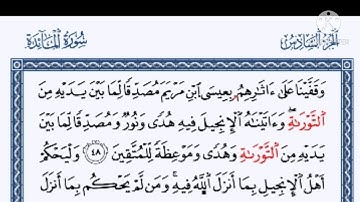 الجزء السادس سورة المائدة
وَقَفَّيْنَا عَلَىٰ ءَاثَٰرِهِم بِعِيسَى اَبْنِ مَرْيَمَ مُصَدِّقًا لِّمَا بَيْنَ يَدَيْهِ مِنَ
اَلتَّوْرَىٰةِ وَءَاتَيْنَٰهُ اُلْإِنجِيلَ فِيهِ هُدًى وَنُورٌ وَمُصَدِّقًا لِّمَا بَيْنَ
يَدَيْهِ مِنَ اَلتَّوْرَىٰةِ وَهُدًى وَمَوْعِظَةً لِّلْمُتَّقِينَ ٤٨ وَلْيَحْكُمْ
أَهْلُ اُلْإِنجِيلِ بِمَا أَنزَلَ اَللَّهُ فِيهِ وَمَن لَّمْ يَحْكُم بِمَا أَنزَلَ